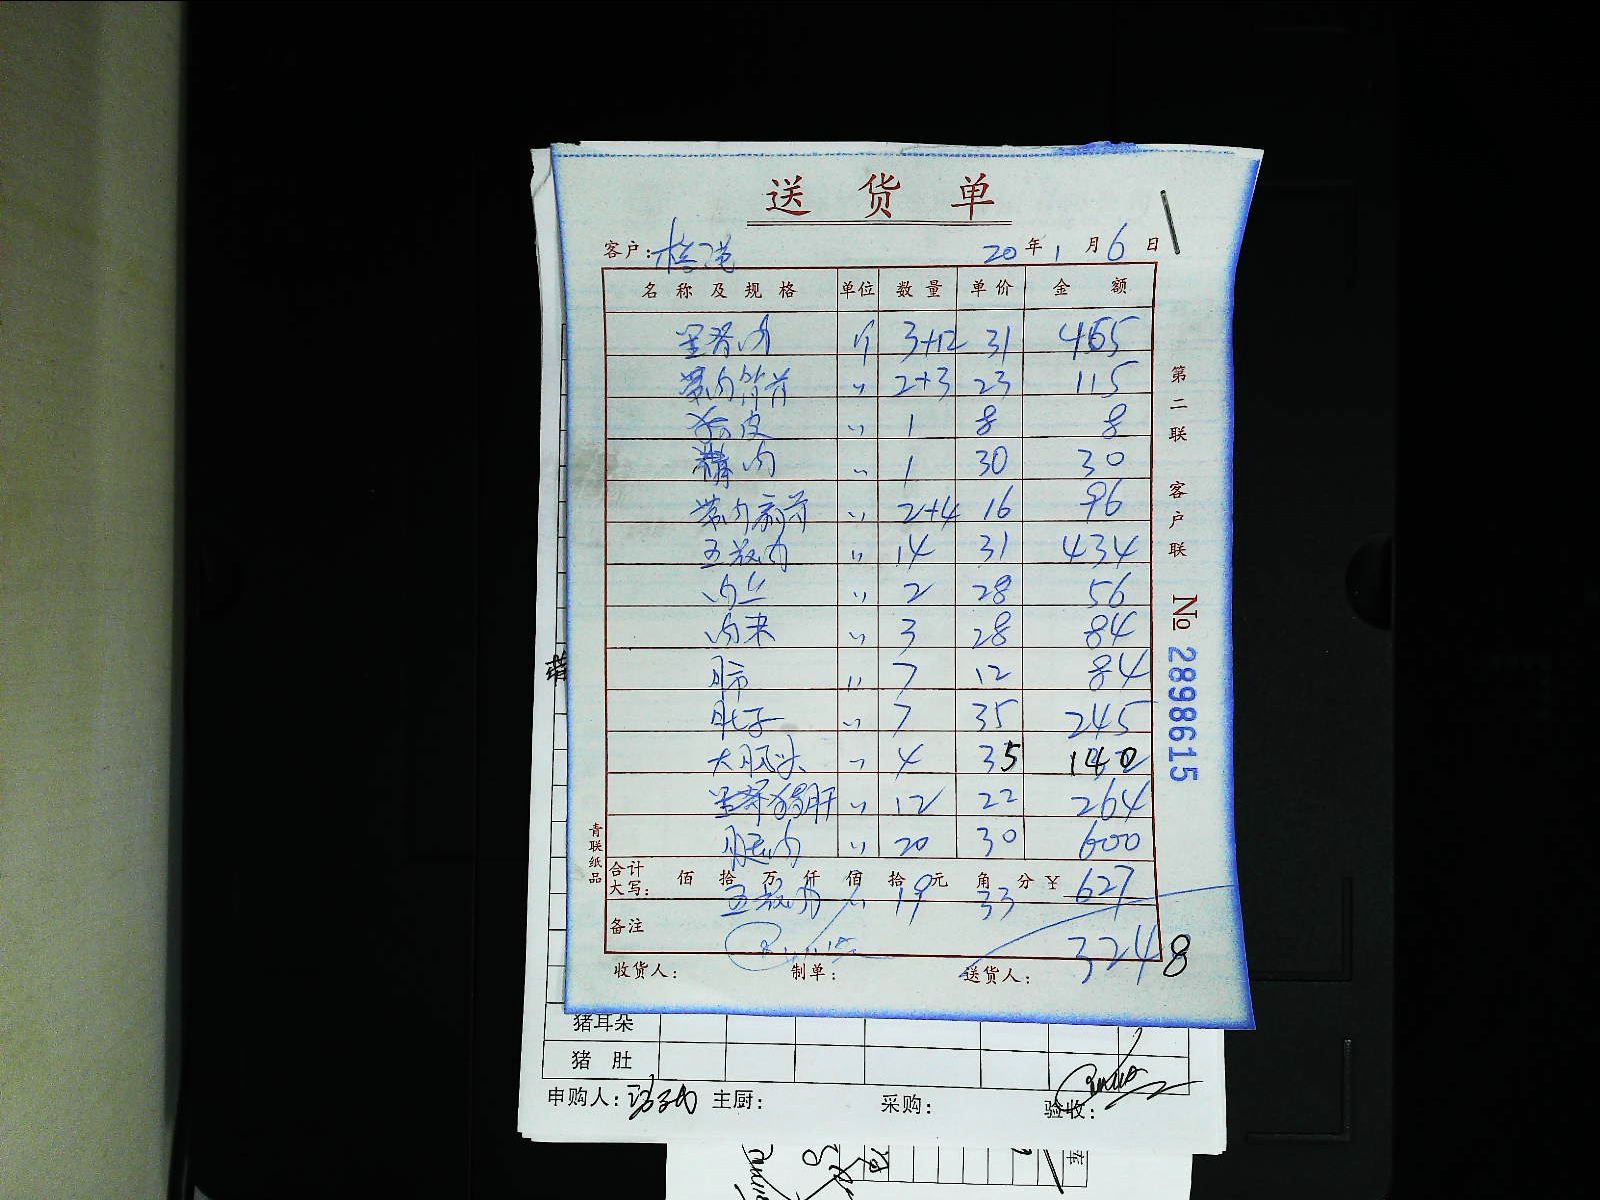 送 货 单
客户: 20年1月6日
名 称 及 规 格 单位 数 量 单 价 金 额
里脊肉 斤 3+12 31 465
带肉筒骨 〃 2+3 23 115
皮 〃 1 8 8
精肉 〃 1 30 30
带肉扇骨 〃 2+4 16 96
五花肉 〃 14 31 434
肉丝 〃 2 28 56
肉末 〃 3 28 84
肺 〃 7 12 84
肚子 〃 7 35 245
大肠头 〃 4 35 140
猪肝 〃 12 22 264
腿肉 〃 20 30 600
合计大写: 佰 拾 万 仟 佰 拾 元 角 分 ¥ 627
五花肉 〃 19 33
备注 3248
收货人: 制单: 送货人:
第二联 客户联
№ 2898615
青联纸品
猪耳朵
猪 肚
申购人: 主厨: 采购: 验收: